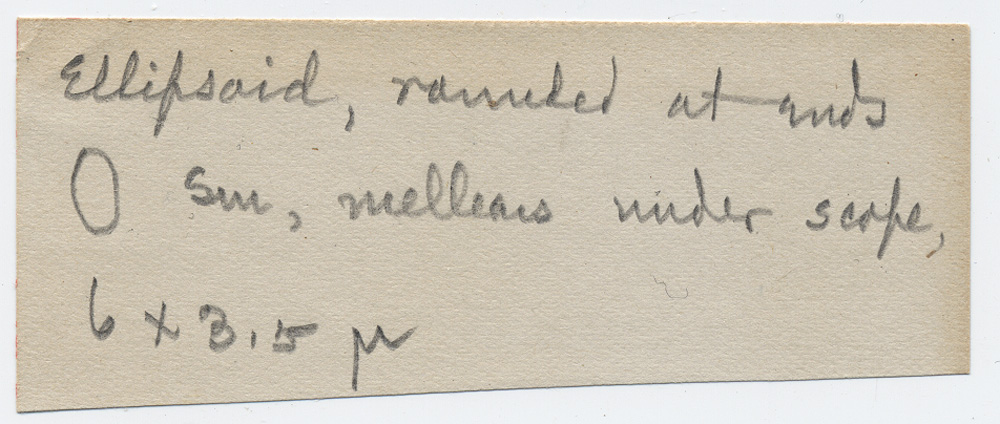 Ellipsoid, rounded at ends
sm, melleous under scope,
6 x 3.5 µ